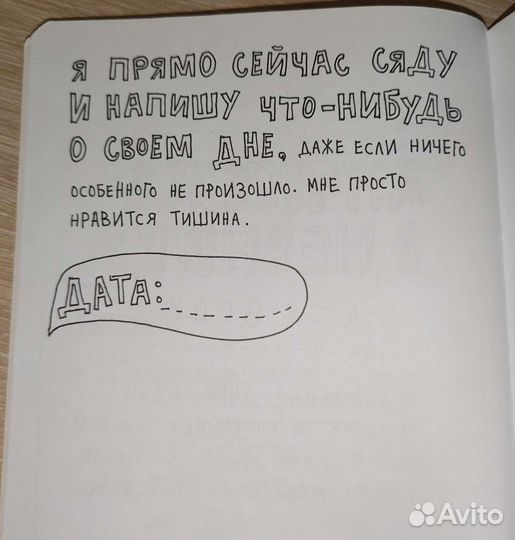 Я ПРЯМО СЕЙЧАС СЯДУ
И НАПИШУ ЧТО-НИБУДЬ
О СВОЕМ ДНЕ, ДАЖЕ ЕСЛИ НИЧЕГО
ОСОБЕННОГО НЕ ПРОИЗОШЛО. МНЕ ПРОСТО
НРАВИТСЯ ТИШИНА.
ДАТА:
Avito